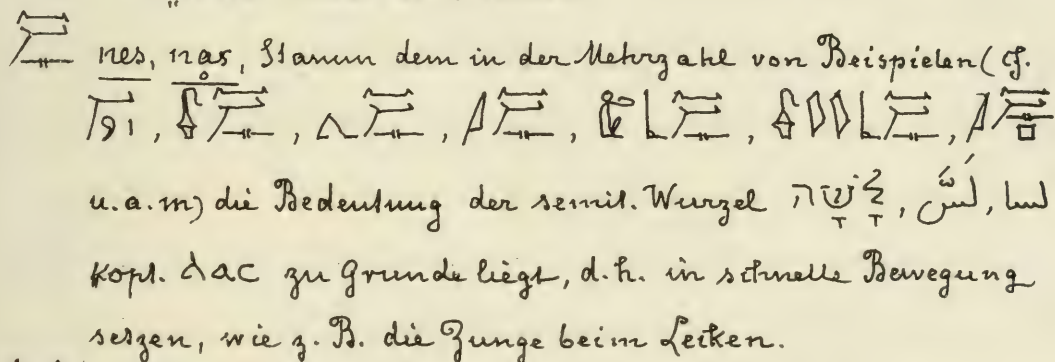 nes, nas, Stamm dem in der Mehrzahl von Beispielen (cf.
u. a. m) die Bedeutung der semit. Wurzel לָשָׁה, لَسَّ, لسا
kopt. λac zu Grunde liegt, d. h. in schnelle Bewegung
setzen, wie z. B. die Zunge beim Lecken.